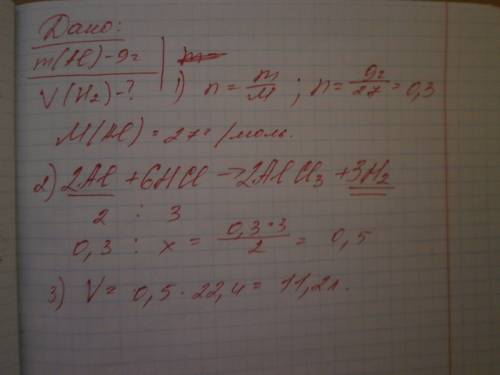 Дано:
m(Al) - 9г
V(H₂) - ?
1) n = m/M ; n = 9г/27 = 0,3
M(Al) = 27г/моль.
2) 2Al + 6HCl → 2AlCl₃ + 3H₂
2 : 3
0,3 : x = 0,3*3/2 = 0,5
3) V = 0,5 · 22,4 = 11,2л.